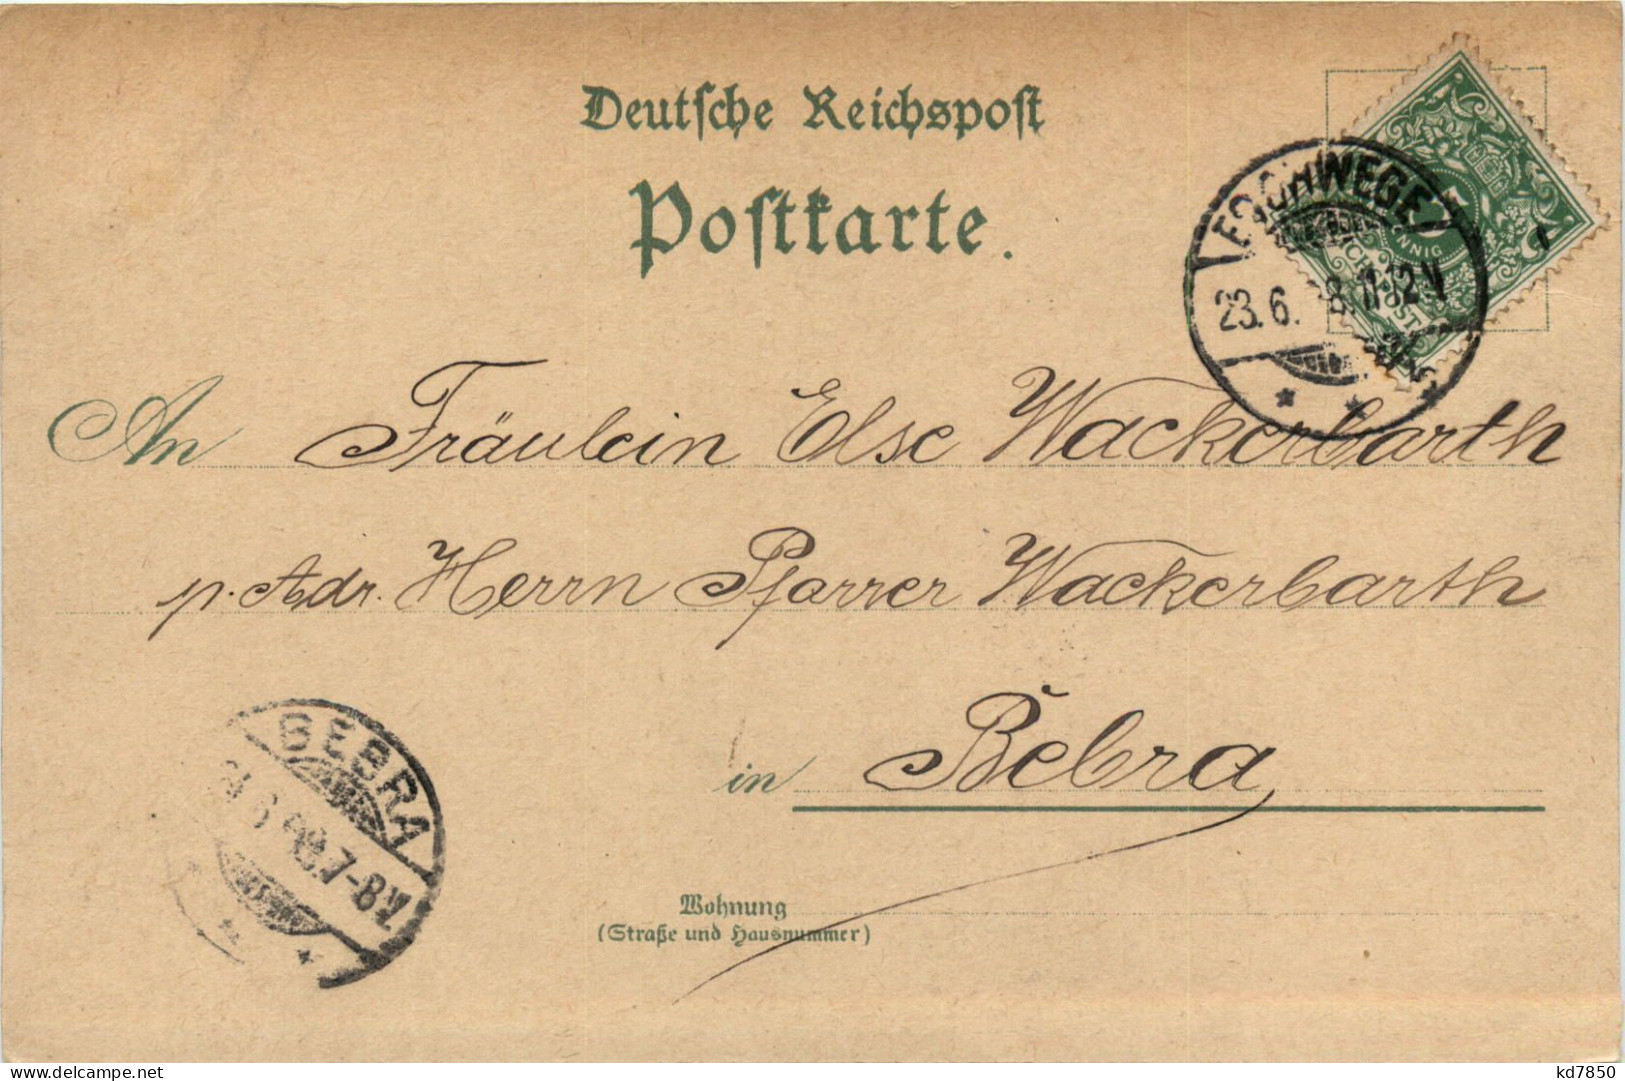 Deutsche Reichspost
Postkarte.
ESCHWEGE
23.6. 8 11-12 V
PFENNIG
REICHSPOST
An Fräulein Else Wackerbarth
p. Adr. Herrn Pfarrer Wackerbarth
in Bebra
BEBRA
6 98. 7-8V.
Wohnung
(Straße und Hausnummer)
kd7850